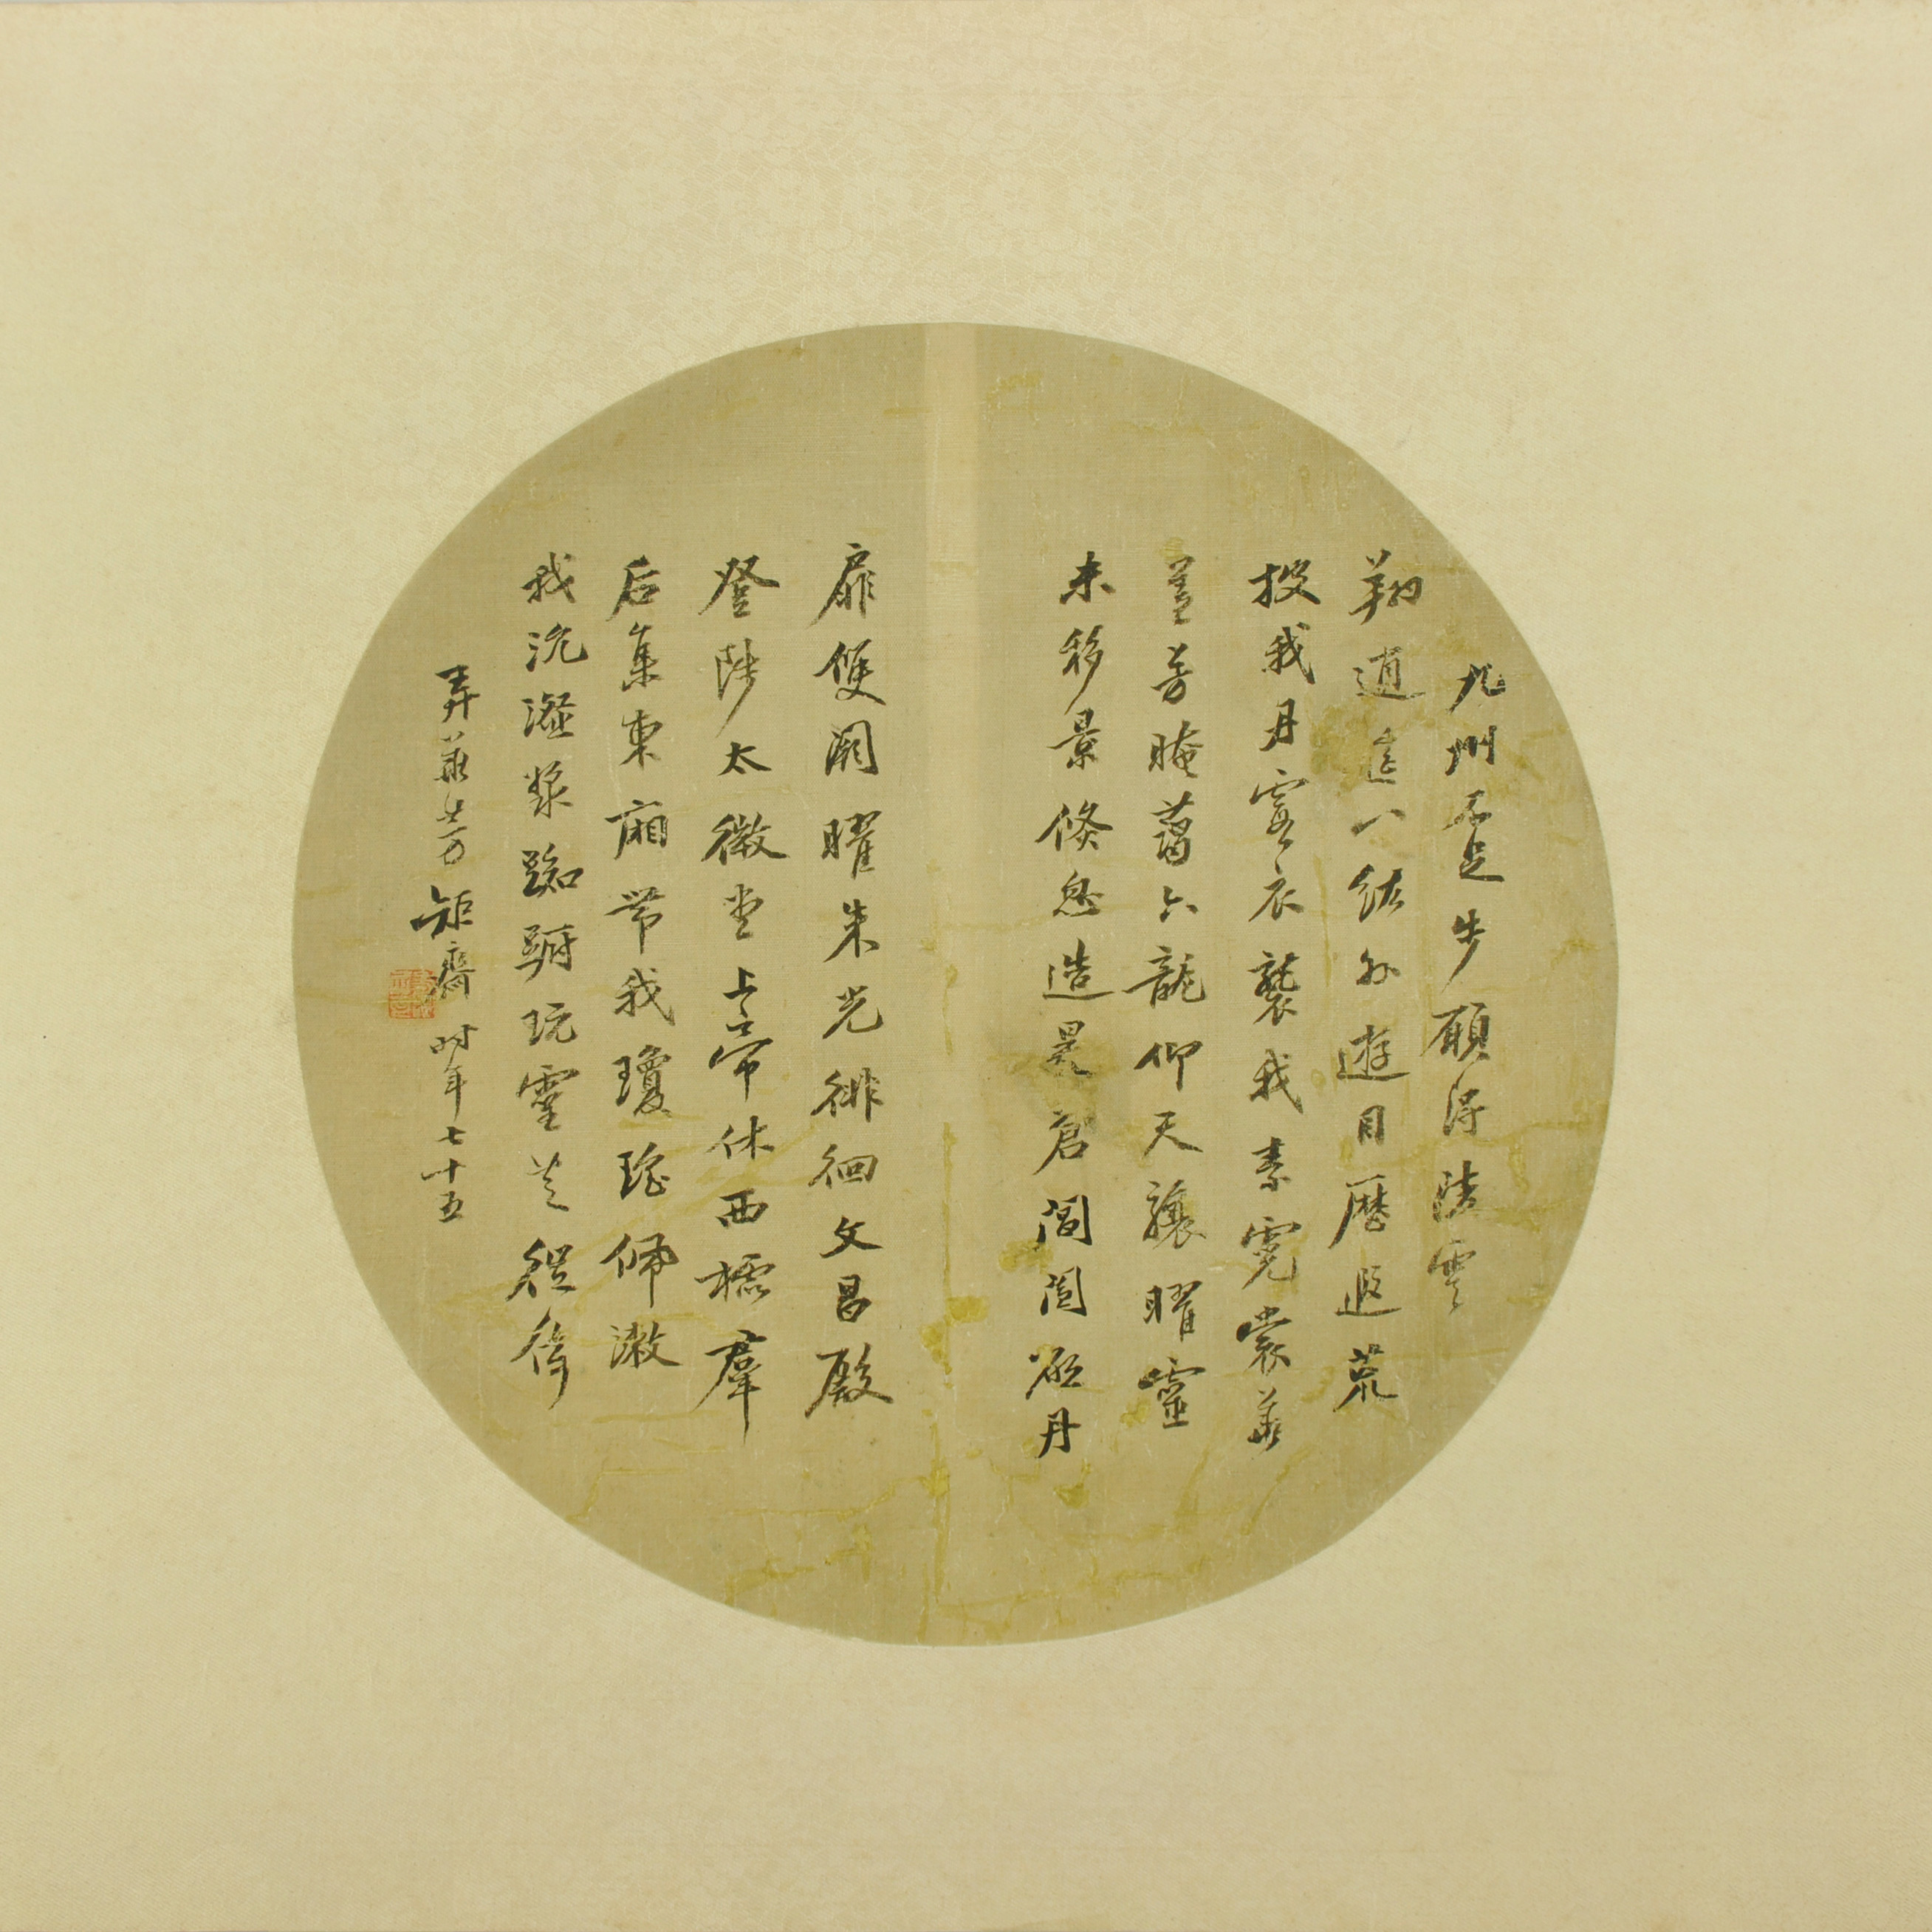 九州不足步願得淩雲
翔逍遙八紘外遊目歷遐荒
披我丹霞衣襲我素霓裳華
蓋芳晻藹六龍仰天驤曜靈
未移景倏忽造昊蒼閶闔啟丹
扉雙闕曜朱光徘徊文昌殿
登陟太微堂上帝休西櫺羣
后集東廂帶我瓊瑤佩漱
我沆瀣漿踟躕玩靈芝徙倚
弄華芳 矩齋 時年七十五